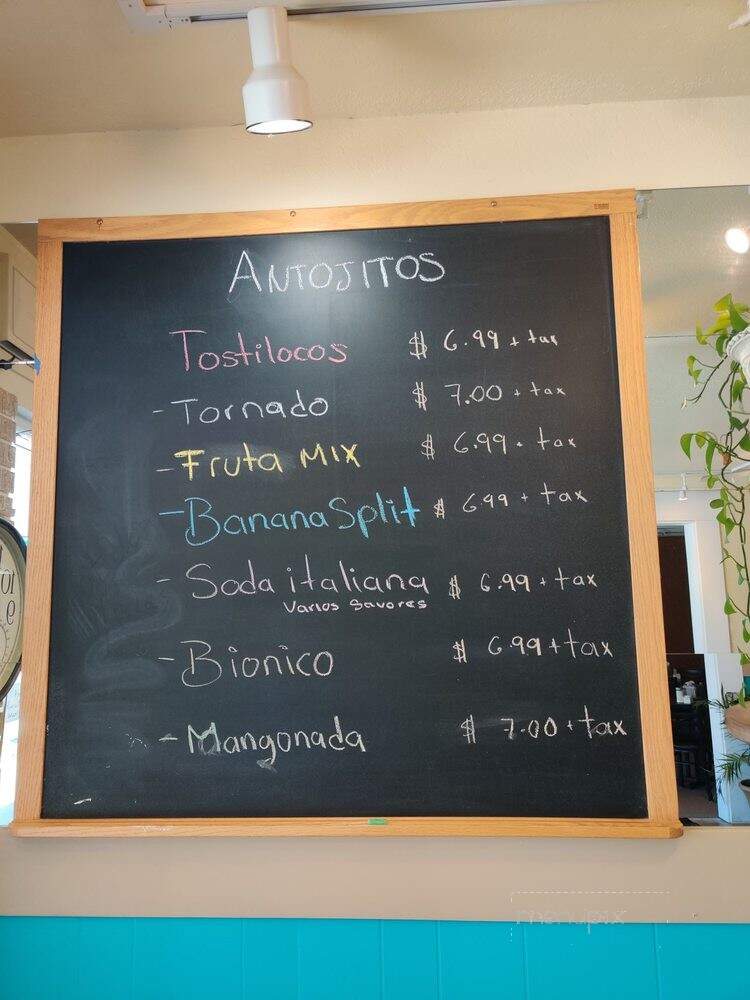 ANTOJITOS
Tostilocos $ 6.99 + tax
- Tornado $ 7.00 + tax
- Fruta MIX $ 6.99 + tax
- Banana Split $ 6.99 + tax
- Soda italiana $ 6.99 + tax
varios savores
- Bionico $ 6.99 + tax
- Mangonada $ 7.00 + tax
menupix